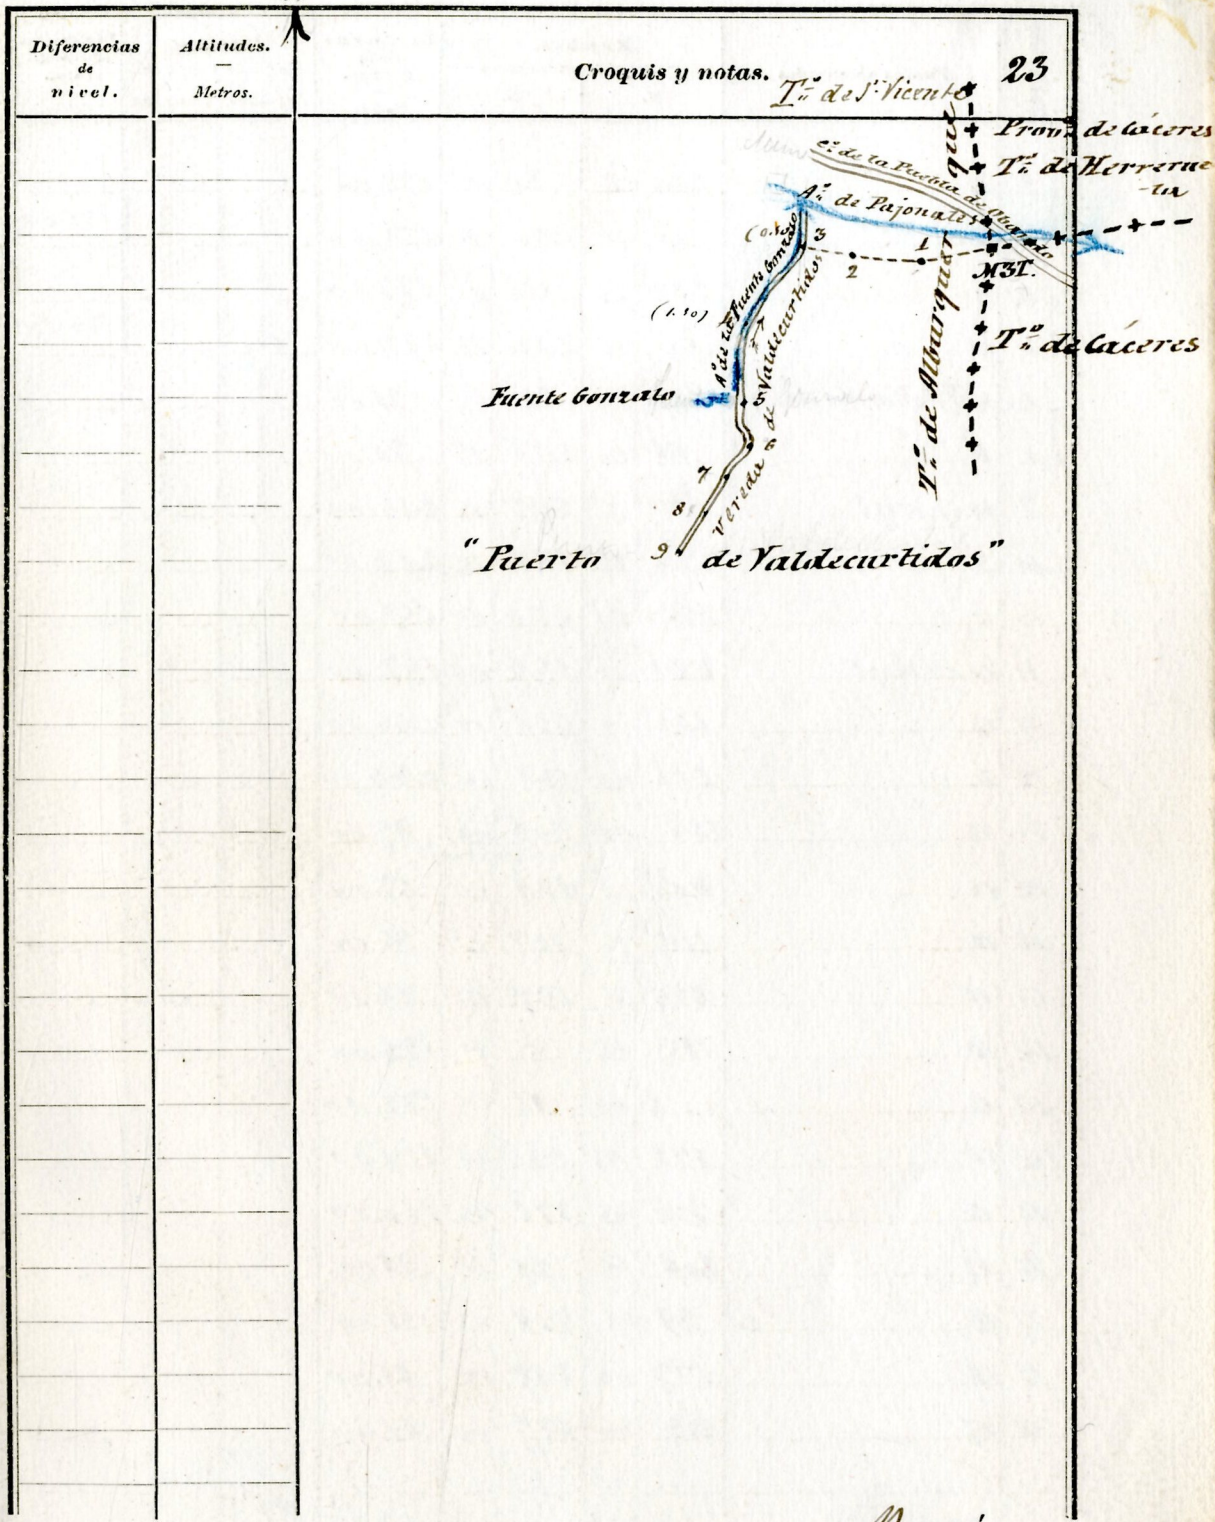 Diferencias
de
nivel.
Altitudes.
Metros.
Croquis y notas.
23
T.º de S. Vicente
Prov.ª de Cáceres
T.º de Herrerue
-la
c.º de la Puebla de Obando
A.º de Pajonales
3
2
1
M3T.
A.º de la Fuente Gonzalo
Vereda de Valdecurtidos
T.º de Alburquer
que
T.º de Cáceres
Fuente Gonzalo
5
6
7
8
9
"Puerto de Valdecurtidos"